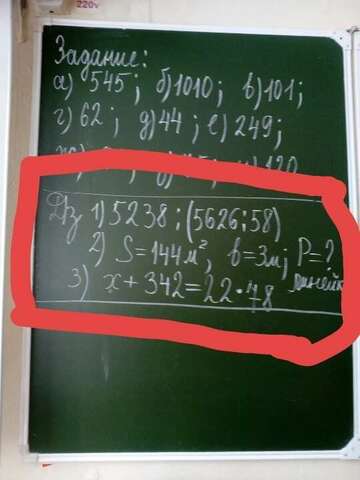 220v
Задание:
а) 545; б) 1010; в) 101;
г) 62; д) 44; е) 249;
120
Д/з 1) 5238 : (5626:58)
2) S = 144 м², b = 3м; P = ?
3) x + 342 = 22 · 78